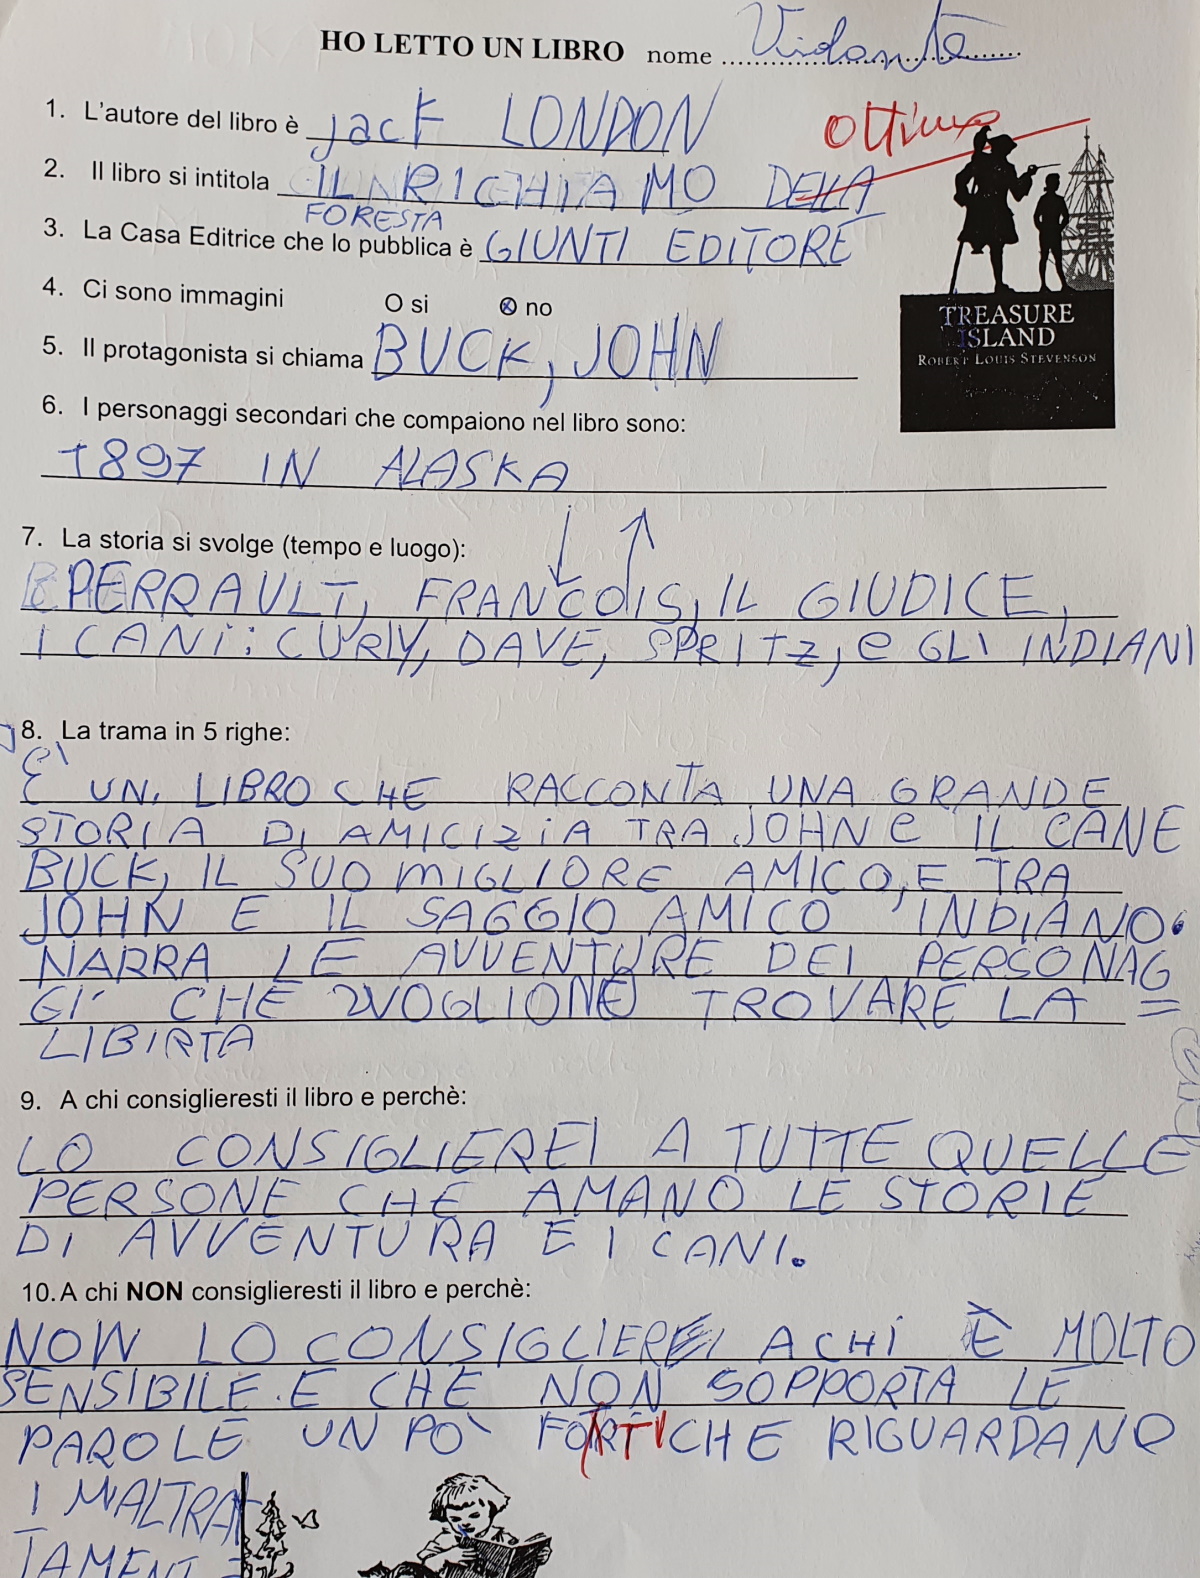 HO LETTO UN LIBRO nome Violante
1. L'autore del libro è jack LONDON
ottimo
2. Il libro si intitola IL RICHIAMO DELLA
FORESTA
3. La Casa Editrice che lo pubblica è GIUNTI EDITORE
4. Ci sono immagini O si ⊗ no
5. Il protagonista si chiama BUCK, JOHN
TREASURE
ISLAND
ROBERT LOUIS STEVENSON
6. I personaggi secondari che compaiono nel libro sono:
1897 IN ALASKA
7. La storia si svolge (tempo e luogo):
PERRAULT, FRANCOIS, IL GIUDICE,
I CANI: CURLY, DAVE, SPRITZ, e GLI INDIANI
8. La trama in 5 righe:
È UN LIBRO CHE RACCONTA UNA GRANDE
STORIA DI AMICIZIA TRA JOHN e IL CANE
BUCK, IL SUO MIGLIORE AMICO, E TRA
JOHN E IL SAGGIO AMICO INDIANO.
NARRA LE AVVENTURE DEI PERSONAG=
GI CHE VOGLIONO TROVARE LA
LIBIRTA
9. A chi consiglieresti il libro e perchè:
LO CONSIGLIEREI A TUTTE QUELLE
PERSONE CHE AMANO LE STORIE
DI AVVENTURA E I CANI.
10. A chi NON consiglieresti il libro e perchè:
NON LO CONSIGLIEREI A CHI È MOLTO
SENSIBILE E CHE NON SOPPORTA LE
PAROLE UN PO' FORTI CHE RIGUARDANO
I MALTRAT
TAMENTI